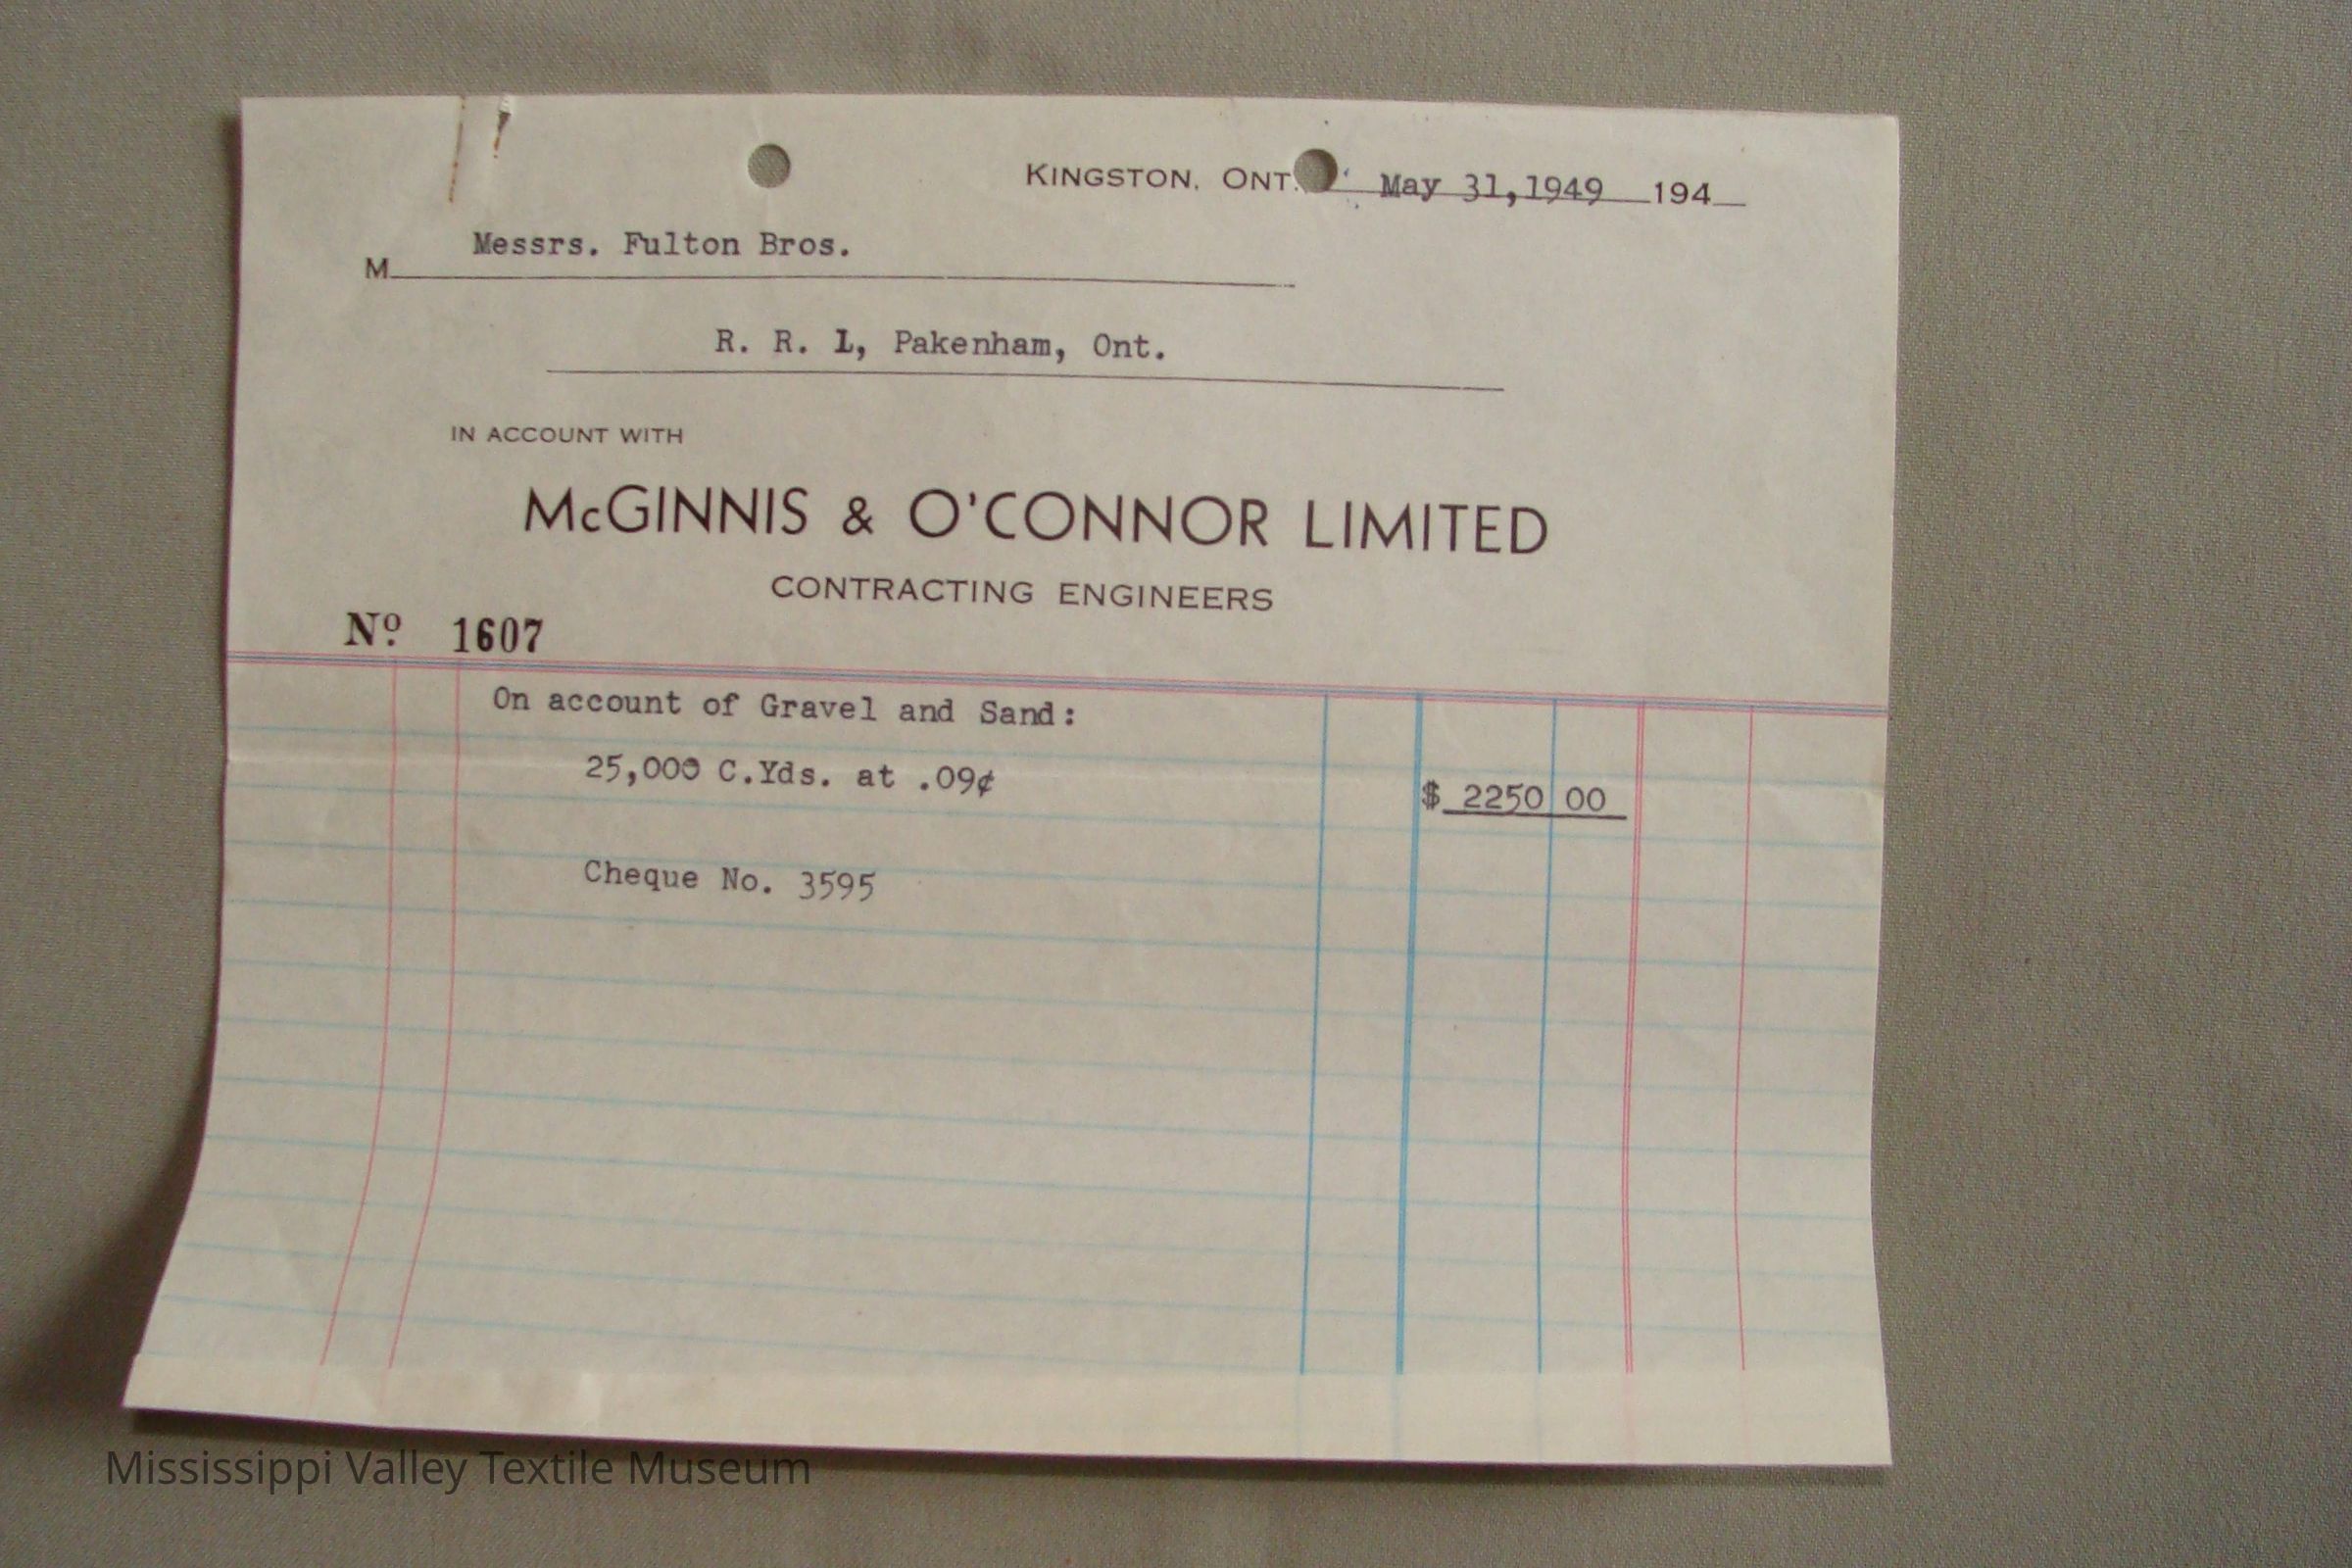 KINGSTON, ONT. May 31,1949 194
M Messrs. Fulton Bros.
R. R. 1, Pakenham, Ont.
IN ACCOUNT WITH
McGINNIS & O'CONNOR LIMITED
CONTRACTING ENGINEERS
Nº 1607
On account of Gravel and Sand:
25,000 C.Yds. at .09¢ $ 2250 00
Cheque No. 3595
Mississippi Valley Textile Museum